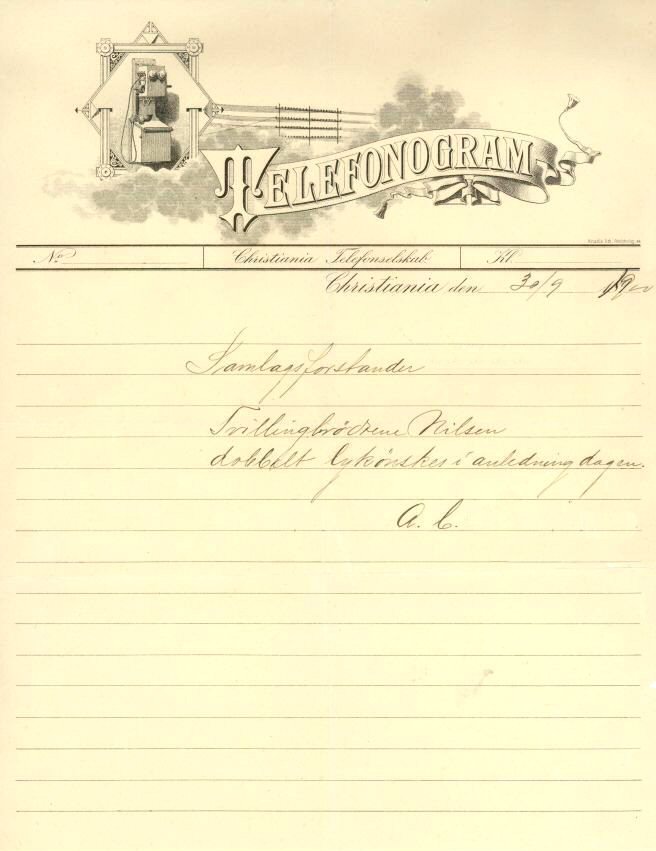 TELEFONOGRAM
No Christiania Telefonselskab Kl
Christiania den 30/9 1900
Samlagsforstander
Tvillingbrödrene Nilsen
dobbelt lykönskes i anledning dagen.
A. C.